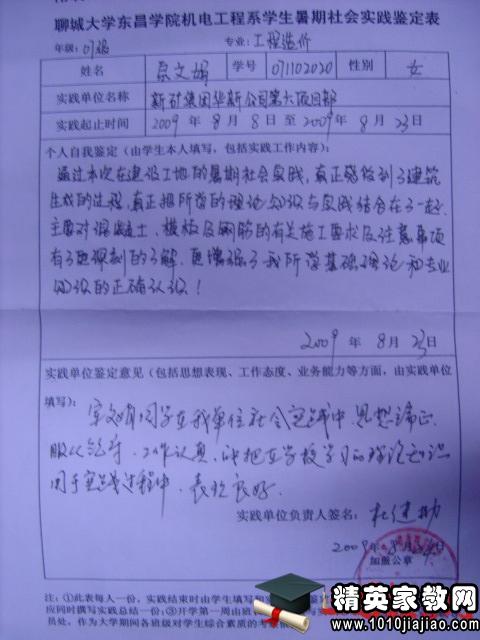 聊城大学东昌学院机电工程系学生暑期社会实践鉴定表
年级：07级 专业：工程造价
姓名 学号 071102020 性别 女
实践单位名称 新矿集团华新公司第六项目部
实践起止时间 2009 年 8 月 8 日 至 2009 年 8 月 23 日
个人自我鉴定（由学生本人填写，包括实践工作内容）：
通过本次在建设工地的暑期社会实践，真正感触到了建筑
生成的过程，真正把所学的理论知识与实践结合在了一起。
主要对混凝土、模板及钢筋的有关施工要求及注意事项
有了更深刻的了解，更增强了我所学基础理论和专业
知识的正确认识！
2009 年 8 月 23 日
实践单位鉴定意见（包括思想表现、工作态度、业务能力等方面，由实践单位
填写）：
文娟同学在我单位社会实践中，思想端正、
服从领导、工作认真，能把在学校学习的理论知识
用于实践过程中，表现良好。
实践单位负责人签名：
2009 年 8 月 日
加盖公章
注：①此表每人一份，实践结束时由学生填写和实践单位鉴
应同时撰写实践总结一份；③开学第一周由班
员处，作为大学期间各班级对学生综合素质的考
精英家教网
www.1010jiajiao.com